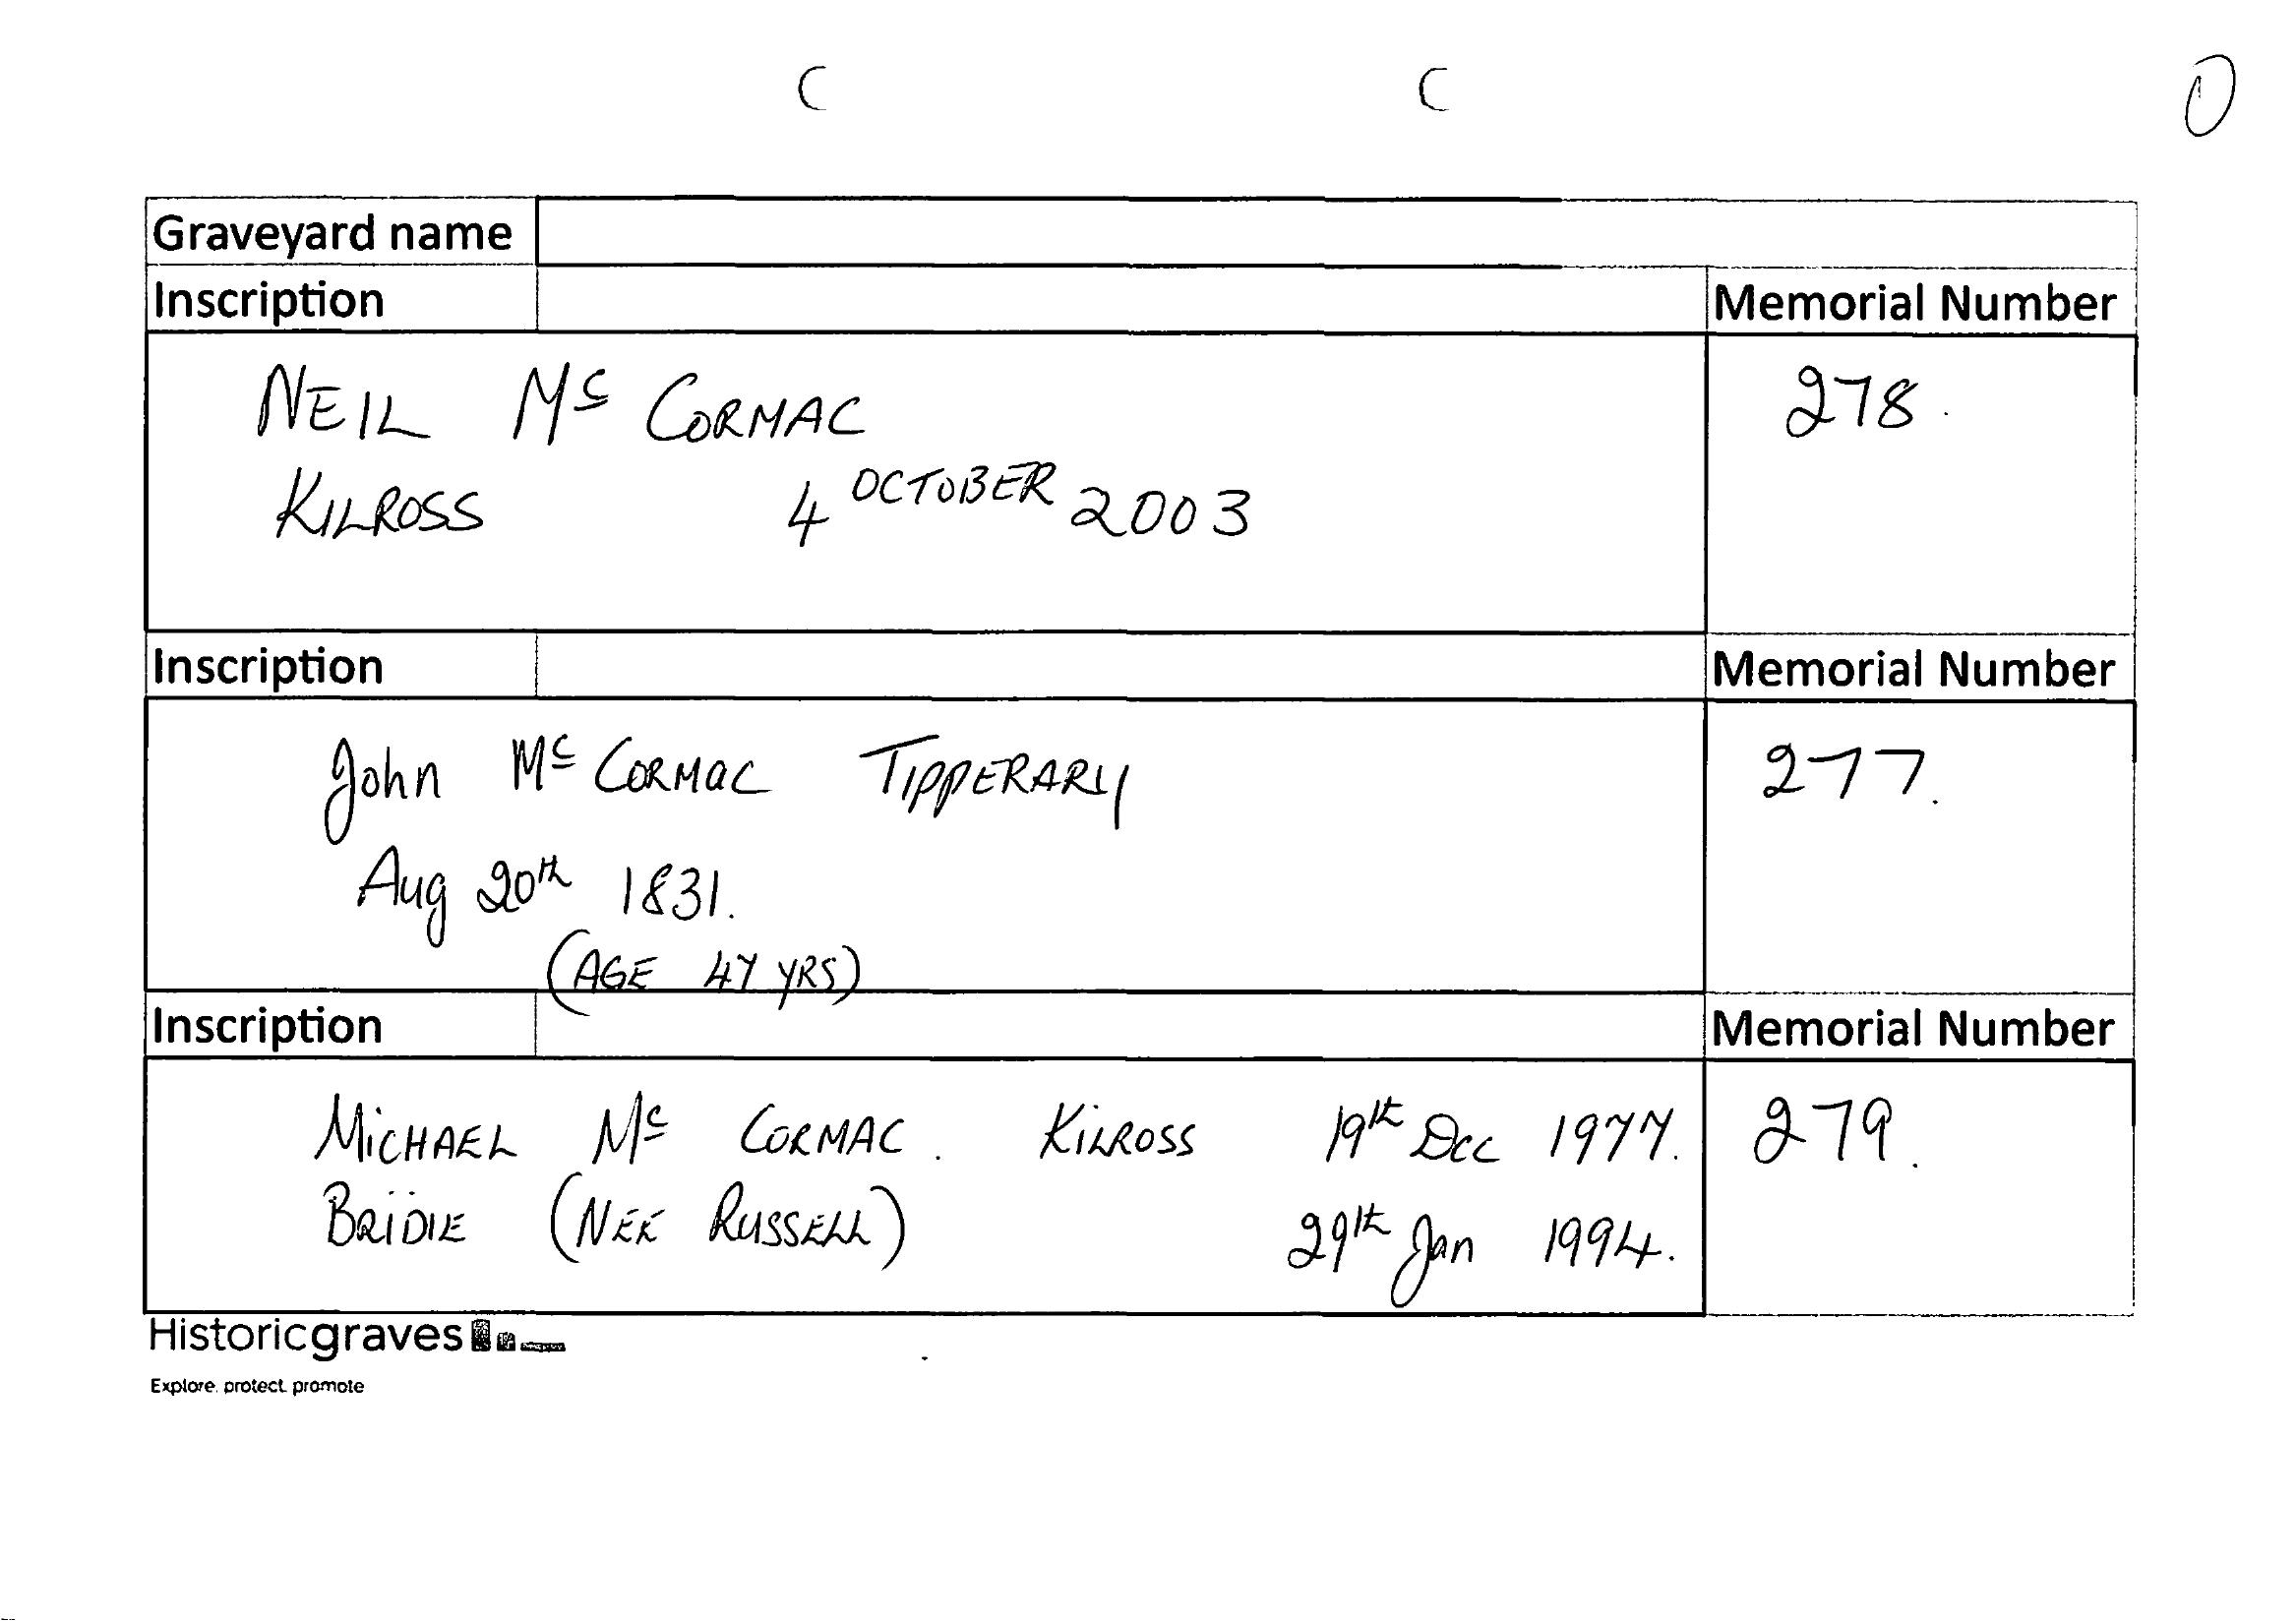 C C 1
Graveyard name
Inscription Memorial Number
NEIL Mc CORMAC 278.
KILROSS 4 OCTOBER 2003
Inscription Memorial Number
John Mc CORMAC TIPPERARY 277.
Aug 20th 1831.
(AGE 47 YRS)
Inscription Memorial Number
MICHAEL Mc CORMAC. KILROSS 19th Dec 1977. 279.
BRIDIE (NEE RUSSELL) 29th Jan 1994.
Historicgraves
Explore. protect. promote